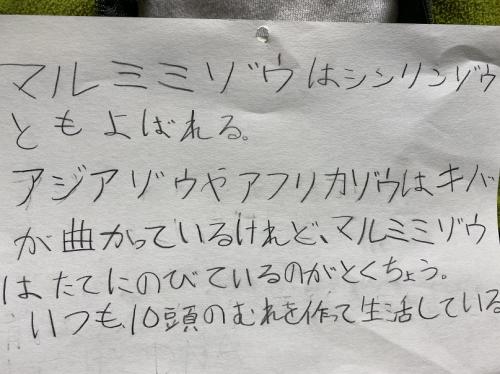 マルミミゾウはシンリンゾウ
ともよばれる。
アジアゾウやアフリカゾウは、キバ
が曲がっているけれど、マルミミゾウ
は、たてにのびているのがとくちょう。
いつも、10頭のむれを作って生活している